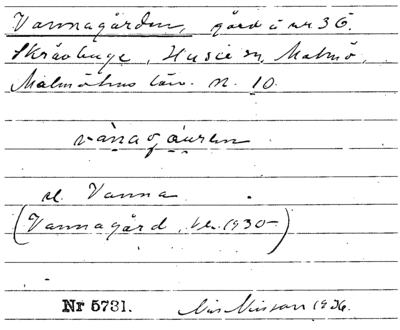 Vannagården, gård å nr 36.
Skrävlinge, Husie sn, Malmö,
Malmöhus län. n. 10.
vànagåuren
el. Vanna
(Vannagård, 1930)
Nr 5731. Nils Nilsson 1936.